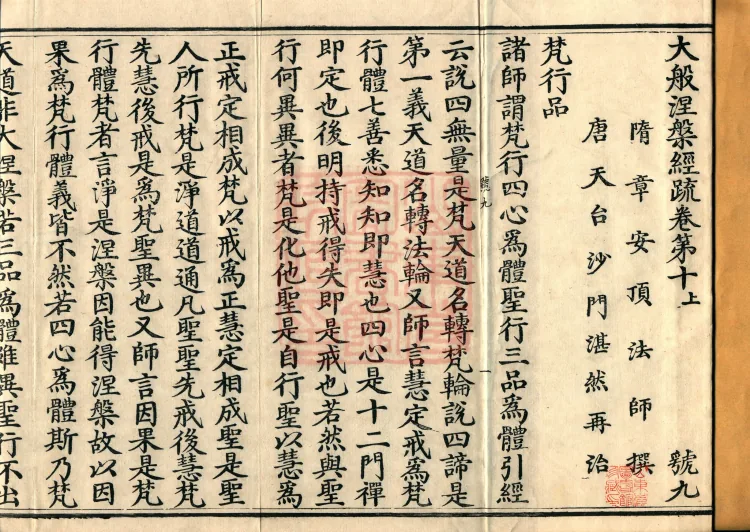 大般涅槃經疏卷第十上 號九
隋章安頂法師撰
唐天台沙門湛然再治
梵行品
諸師謂梵行四心爲體聖行三品爲體引經
云說四無量是梵天道名轉梵輪說四諦是
第一義天道名轉法輪又師言慧定戒爲梵
行體七善悉知知即慧也四心是十二門禪
即定也後明持戒得失即是戒也若然與聖
行何異異者梵是化他聖是自行聖以慧爲
正戒定相成梵以戒爲正慧定相成聖是聖
人所行梵是淨道道通凡聖聖先戒後慧梵
先慧後戒是爲梵聖異也又師言因果是梵
行體梵者言淨是涅槃因能得涅槃故以因
果爲梵行體義皆不然若四心爲體斯乃梵
天道非大涅槃若三品爲體雖異聖行不出
號九
一